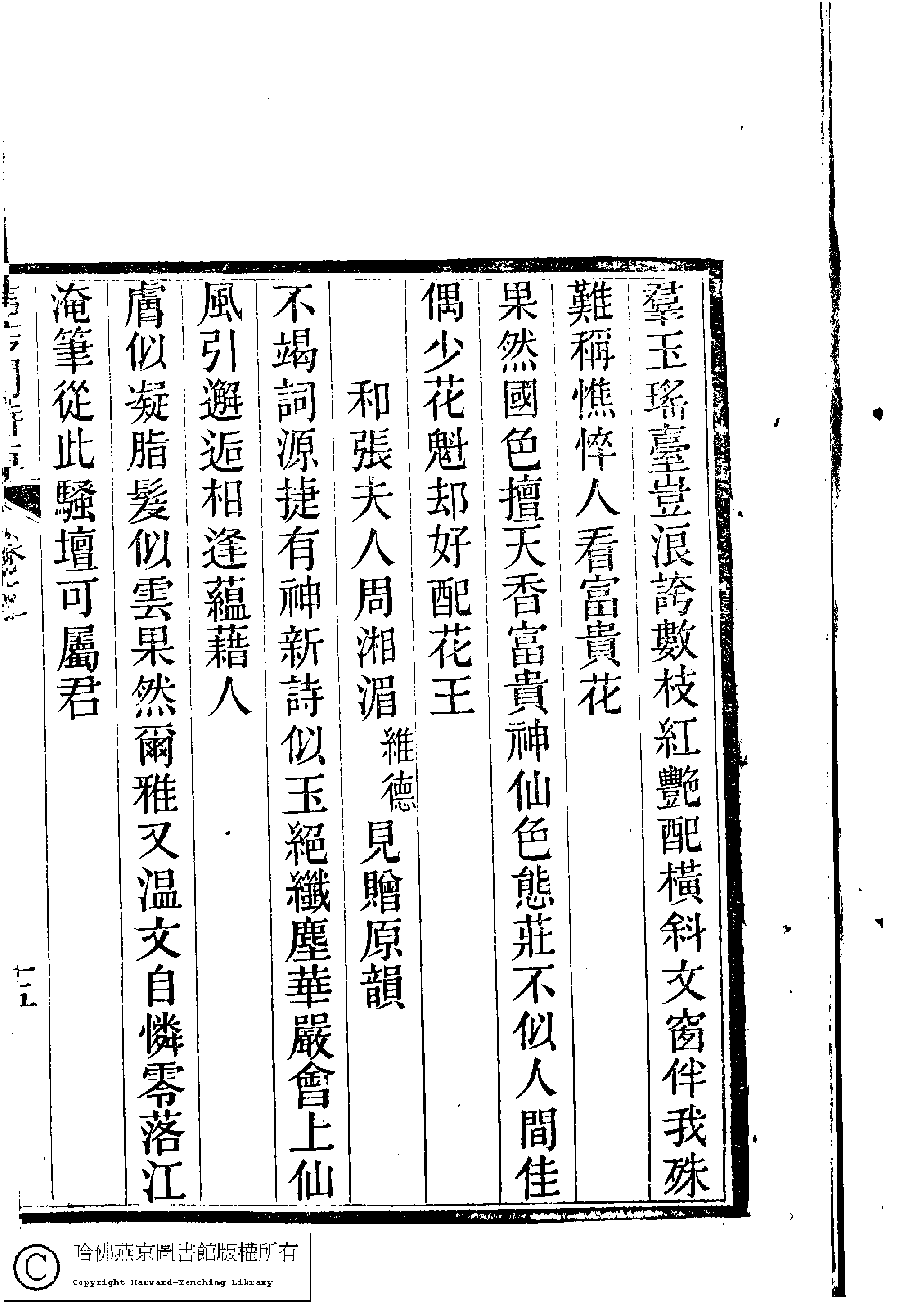 羣玉瑤臺豈浪誇數枝紅艷配橫斜文窗伴我殊
難稱憔悴人看富貴花
果然國色擅天香富貴神仙色態莊不似人間佳
偶少花魁却好配花王
和張夫人周湘湄維德見贈原韻
不竭詞源捷有神新詩似玉絕纖塵華嚴會上仙
風引邂逅相逢蘊藉人
膚似凝脂髮似雲果然爾雅又温文自憐零落江
淹筆從此騷壇可屬君
十五
哈佛燕京圖書館版權所有
Copyright Harvard-Yenching Library